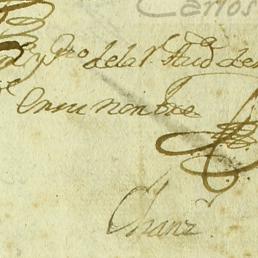 Carlos
y Pro de la Rl Aud de
En su nombre
Chanz